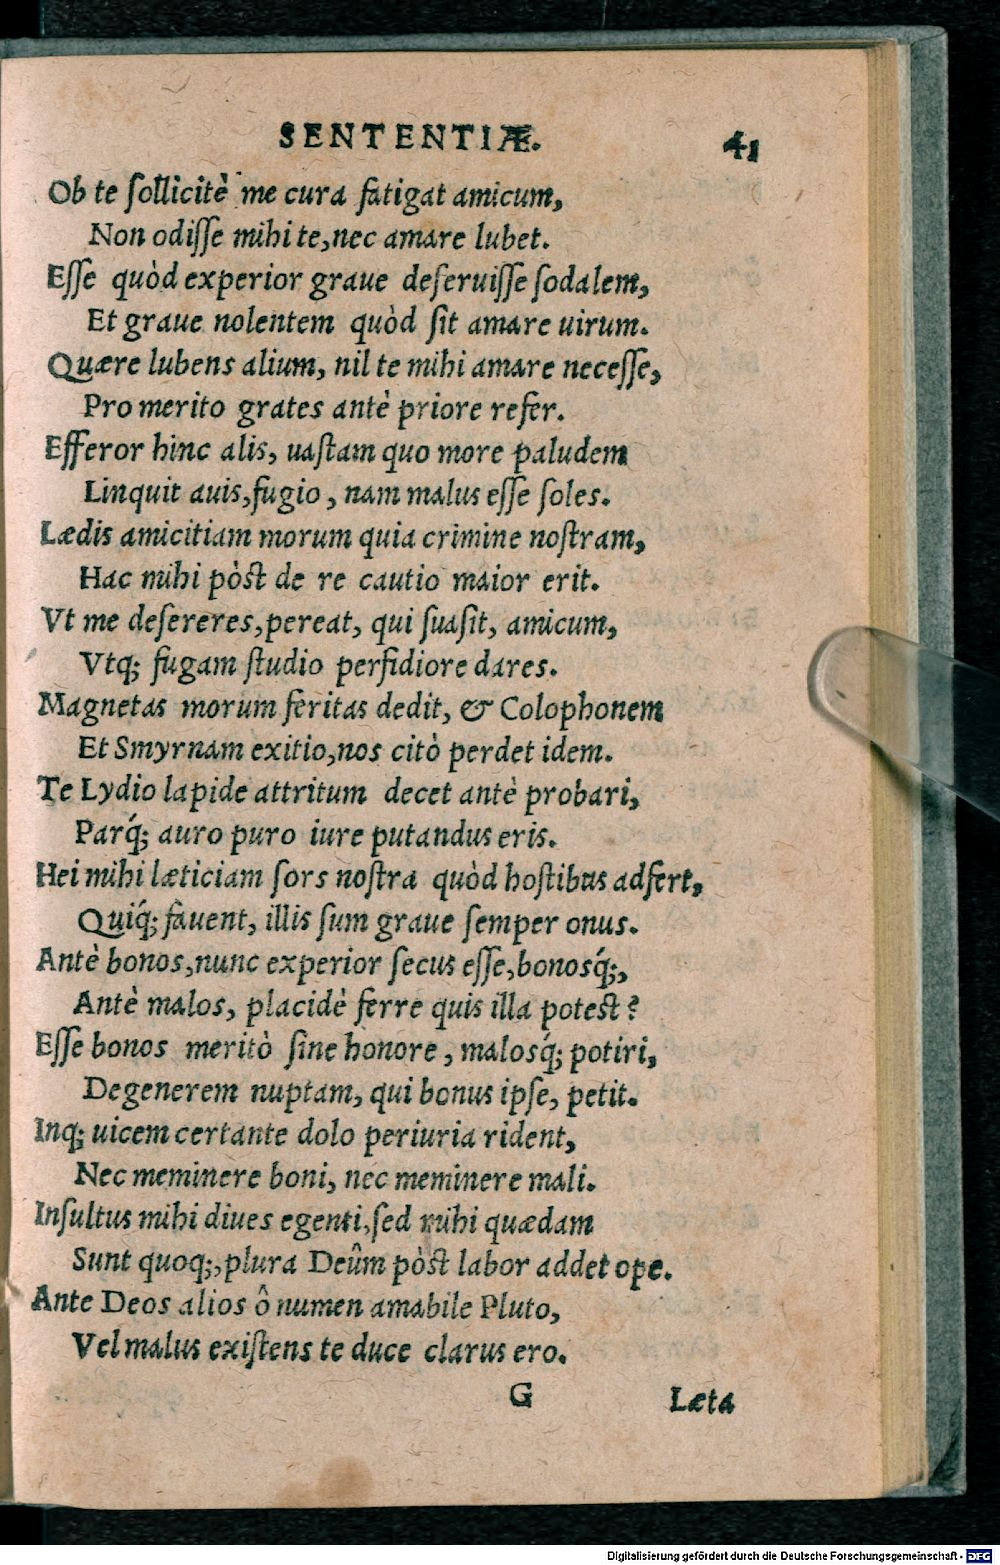 SENTENTIÆ. 41
Ob te ſollicitè me cura fatigat amicum,
Non odiſſe mihi te, nec amare lubet.
Eſſe quòd experior graue deſeruiſſe ſodalem,
Et graue nolentem quòd ſit amare uirum.
Quære lubens alium, nil te mihi amare neceſſe,
Pro merito grates antè priore refer.
Efferor hinc alis, uaſtam quo more paludem
Linquit auis, fugio, nam malus eſſe ſoles.
Lædis amicitiam morum quia crimine noſtram,
Hac mihi pòſt de re cautio maior erit.
Vt me deſereres, pereat, qui ſuaſit, amicum,
Vtq; fugam ſtudio perfidiore dares.
Magnetas morum feritas dedit, & Colophonem
Et Smyrnam exitio, nos citò perdet idem.
Te Lydio lapide attritum decet antè probari,
Parq́; auro puro iure putandus eris.
Hei mihi læticiam ſors noſtra quòd hoſtibus adfert,
Quiq́; fauent, illis ſum graue ſemper onus.
Antè bonos, nunc experior ſecus eſſe, bonosq́;,
Antè malos, placidè ferre quis illa poteſt?
Eſſe bonos meritò ſine honore, malosq́; potiri,
Degenerem nuptam, qui bonus ipſe, petit.
Inq; uicem certante dolo periuria rident,
Nec meminere boni, nec meminere mali.
Inſultus mihi diues egenti, ſed mihi quædam
Sunt quoq;, plura Deûm pòſt labor addet ope.
Ante Deos alios ô numen amabile Pluto,
Vel malus exiſtens te duce clarus ero.
G Læta
Digitalisierung gefördert durch die Deutsche Forschungsgemeinschaft - DFG